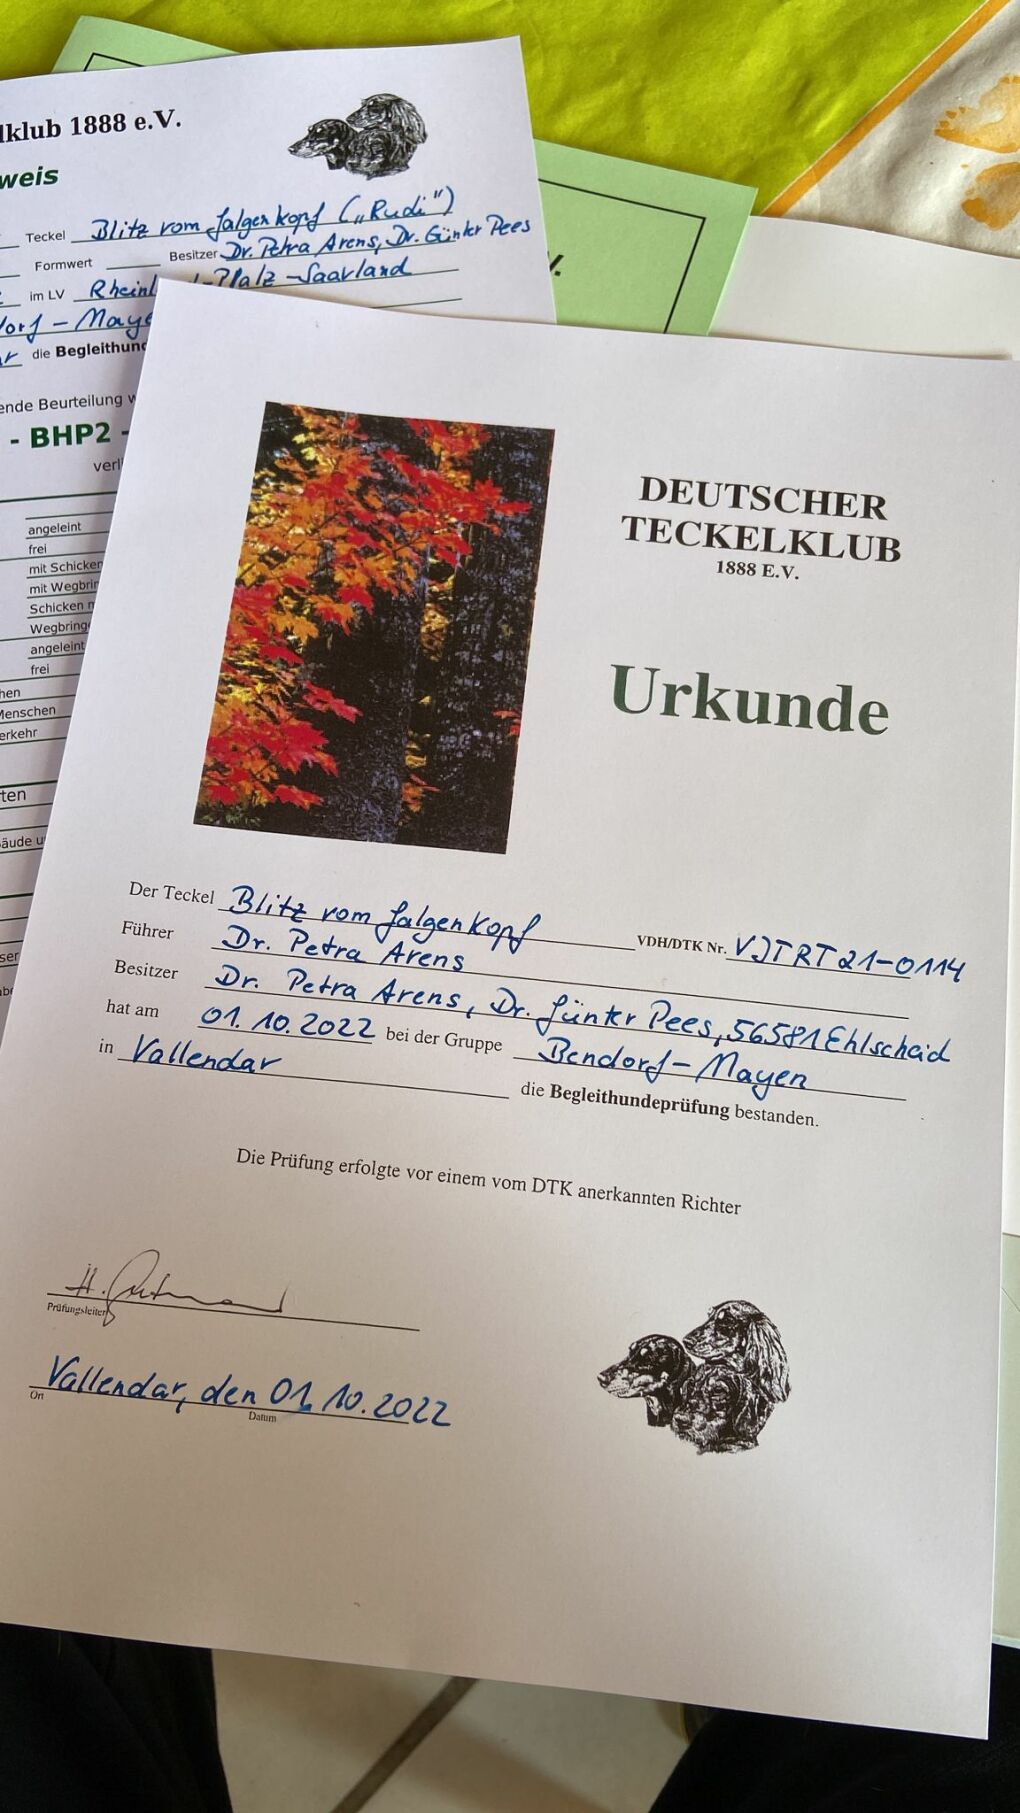 lklub 1888 e.V.
weis
Teckel Blitz vom Galgenkopf („Rudi")
Formwert Besitzer Dr. Petra Arens, Dr. Günter Pees
im LV Rheinl -Pfalz-Saarland
dorf-Maye
die Begleithun
ende Beurteilung w
- BHP2 -
verli
angeleint
frei
mit Schicken
mit Wegbrin
Schicken m
Wegbringe
angeleint
frei
hen
Menschen
erkehr
ten
äude u
DEUTSCHER
TECKELKLUB
1888 E.V.
Urkunde
Der Teckel Blitz vom Galgenkopf VDH/DTK Nr. VJTRT21-0114
Führer Dr. Petra Arens
Besitzer Dr. Petra Arens, Dr. Günter Pees, 56581 Ehlscheid
hat am 01.10.2022 bei der Gruppe Bendorf-Mayen
in Vallendar die Begleithundeprüfung bestanden.
Die Prüfung erfolgte vor einem vom DTK anerkannten Richter
Prüfungsleiter
Vallendar, den 01.10.2022
Ort Datum